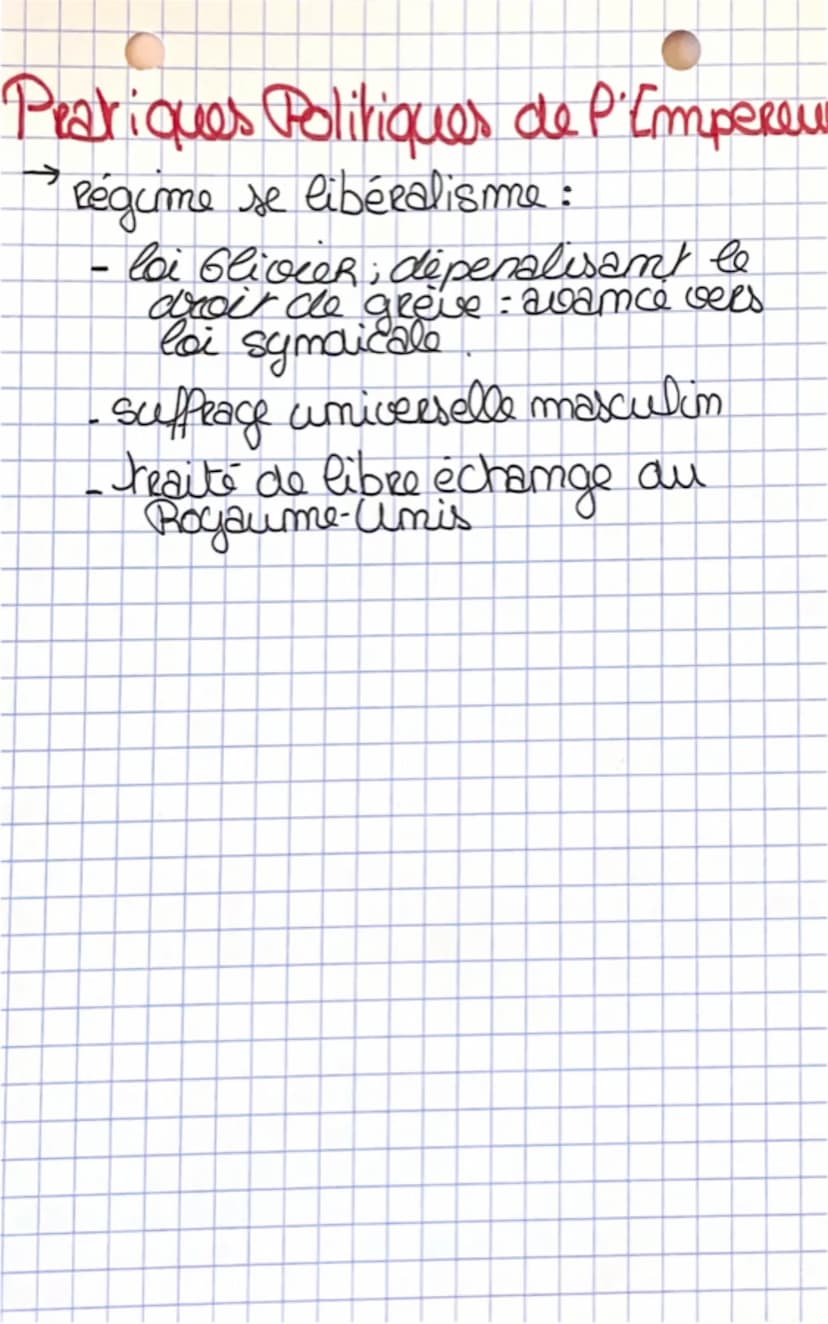 Pratiques Politiques de l'Empereu
→ Régime se libéralisme :
- loi Olivier ; dépenalisant le
droit de grève = avancé vers
loi syndicale.
- suffrage universelle masculin
- traité de libre échange au
Royaume-Unis